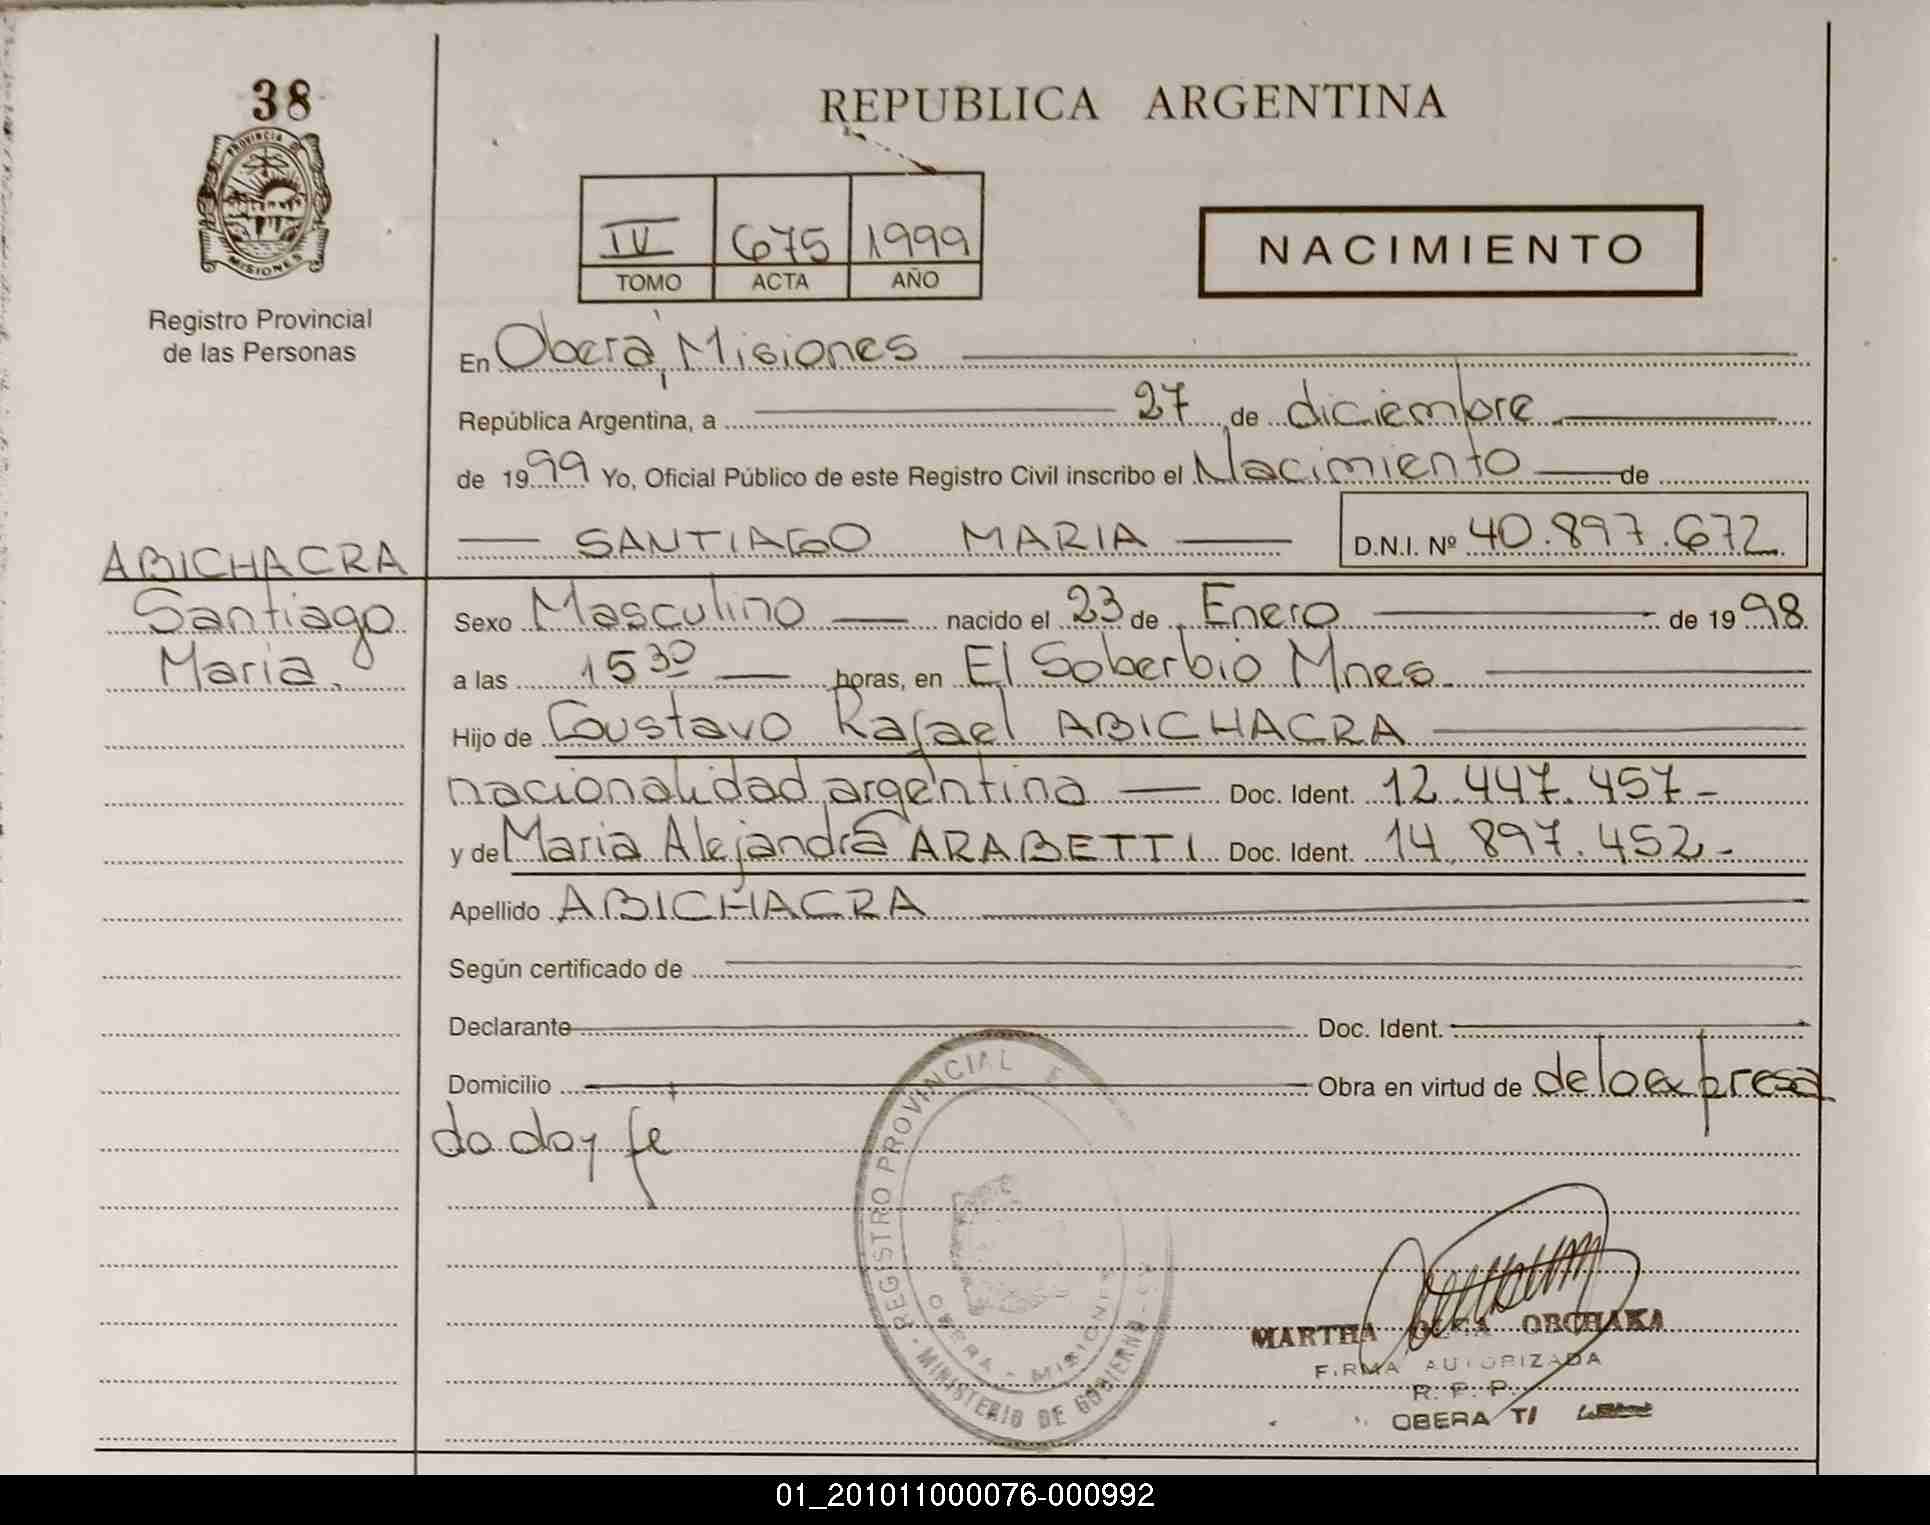 38
REPUBLICA ARGENTINA
PROVINCIA DE
MISIONES
Registro Provincial
de las Personas
IV 675 1999
TOMO ACTA AÑO
NACIMIENTO
En Oberá, Misiones
República Argentina, a 27 de diciembre
de 1999 Yo, Oficial Público de este Registro Civil inscribo el Nacimiento de
SANTIAGO MARIA D.N.I. Nº 40.897.672
ABICHACRA
Santiago
Maria.
Sexo Masculino nacido el 23 de Enero de 1998
a las 15 30 horas, en El Soberbio Mnes.
Hijo de Gustavo Rafael ABICHACRA
nacionalidad argentina Doc. Ident. 12.447.457-
y de Maria Alejandra ARABETTI Doc. Ident. 14.897.452-
Apellido ABICHACRA
Según certificado de
Declarante Doc. Ident.
Domicilio Obra en virtud de lo expresa
do doy fe
REGISTRO PROVINCIAL
OBERA - MISIONES
MINISTERIO DE GOBIERNO
MARTHA OLGA OBCHAKA
FIRMA AUTORIZADA
R. P. P.
OBERA
01_201011000076-000992